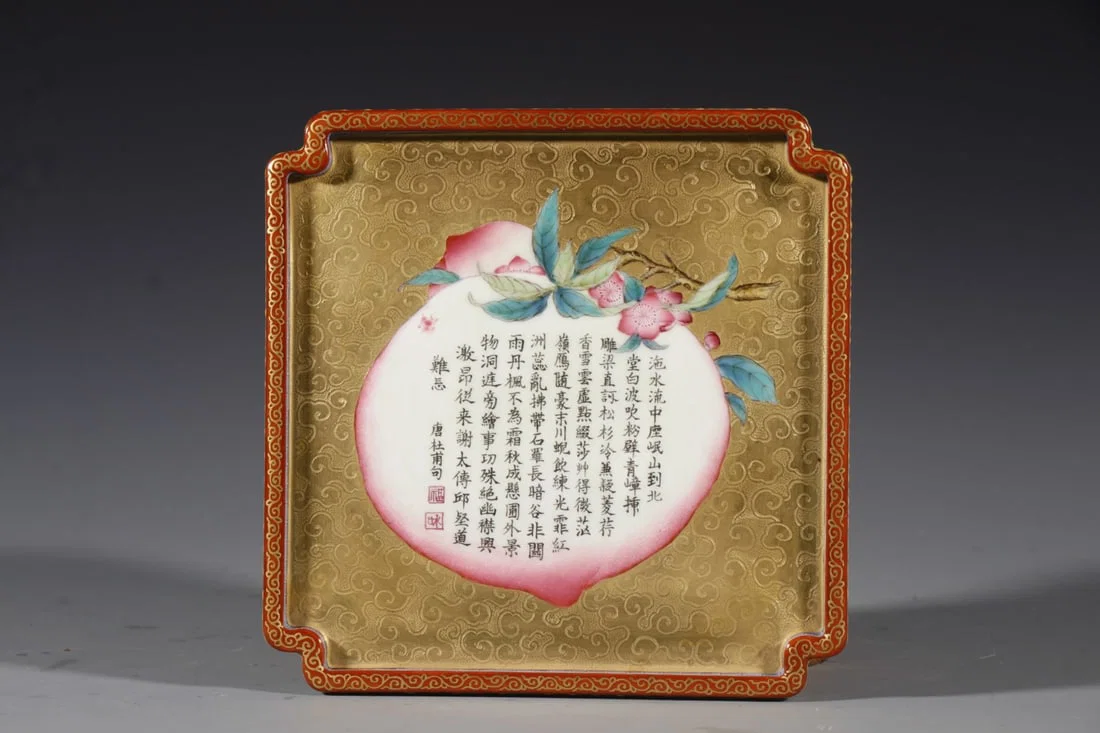 沲水流中座岷山到北
堂白波吹粉壁青嶂插
雕梁直訝松杉冷兼疑菱荇
香雪雲虛點綴莎艸得微茫
嶺鴈隨豪末川蜺飲練光霏紅
洲蕊亂拂帶石蘿長暗谷非關
雨丹楓不為霜秋成懸圃外景
物洞庭旁繪事功殊絕幽襟興
激昂從来謝太傅邱壑道
難忘
唐杜甫句